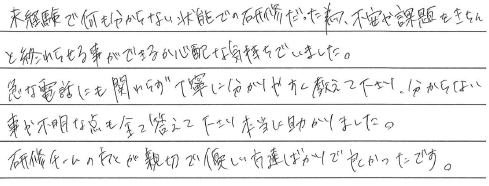 未経験で何も分からない状態での研修だった為、不安や課題をきちん
と終わらせる事ができるか心配な気持ちでいました。
急な電話にも関わらず丁寧に分かりやすく教えて下さり、分からない
事や不明な点も全て答えて下さり本当に助かりました。
研修チームの方々が親切で優しい方達ばかりで良かったです。